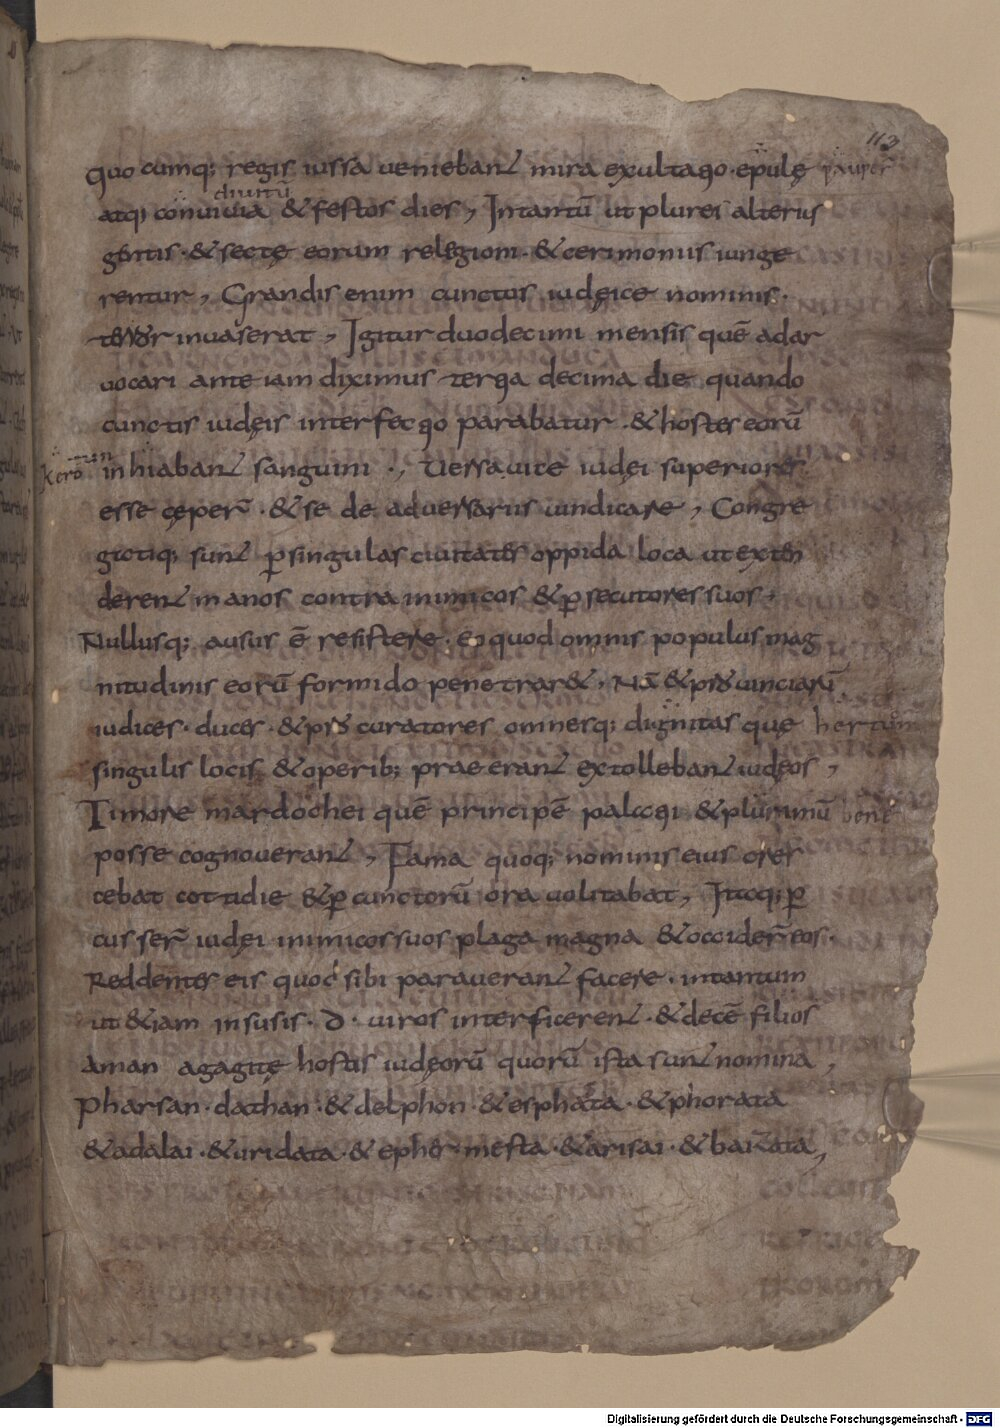 113
quo cumq; regis iussa uenieban&#x305;t mira exultatio · epulę pauper̄
diuitū
atq; conuiuia & festos dies, Intantū ut plures alterius
gentis · & sectę eorum relegioni · & cerimoniis iunge
rentur, Grandis enim cunctus iudęice nominis ·
terror inuaserat, Igitur duodecimi mensis quē adar
uocari ante iam diximus tertia decima die quando
cunctis iudęis interfectio parabatur · & hostes eorū
inhiabant sanguini ·, Uersa uice iudęi superiores
esse cęper̄ · & se de aduersariis uindicare, Congre
gatiq; sunt ꝑ singulas ciuitates oppida loca ut exten
derent manos contra inimicos & ꝑsecutores suos,
Nullusq; ausus ē resistere · eo quod omnis populus mag
nitudinis eorū formido penetrar& · Nā & prouinciarū
iudices · duces · & procuratores omnesq; dignitas que hertum
singulis locis & operib; praeerant extollebant iudęos,
Timore mardochei quē principē palatii & plurimū bene
posse cognouerant, Fama quoq; nominis eius cres
cebat cottidie & ꝑ cunctorū ora uolitabat, Itaq; ꝑ
cusser̄ iudęi inimicos suos plaga magna & occider̄ eos ·
Reddentes eis quod sibi parauerant facere · intantum
ut &iam in susis · D · uiros interficerent · & decē filios
aman agagitę hostis iudęorū quorū ista sunt nomina,
Pharsan · dathan · & delphon · & esphata · & phorata
& adalai · & uridata · & epher mesta · & arisai · & baizata,